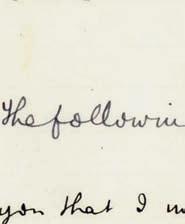 The followin
you that I